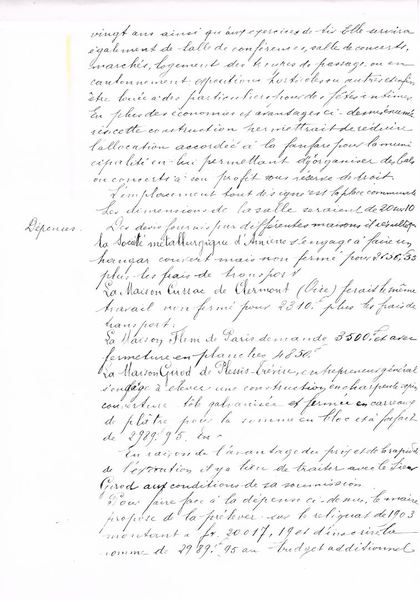 vingt ans ainsi qu'aux exercices de tir. Elle servira
également de salle de conférences, salle de concerts,
marchés, logement des troupes de passage ou en
cantonnement expositions horticoles ou autres et enfin
être louée à des particuliers pour des fêtes intimes.
En plus des économies et avantages ci-dessus énumé
rés cette construction permettrait de réduire
l'allocation accordée à la fanfare pour la muni
cipalité en lui permettant d'organiser des bals
ou concerts à son profit sous réserve de droit.
L'emplacement tout désigné est la place communale
Les dimensions de la salle seraient de 20 m 10
Dépenses. Des devis fournis par différentes maisons il résulte que
la Société métallurgique d' s'engage à faire un
hangar couvert mais non fermé pour
plus les frais de transport
La Maison Cussac de Clermont (Oise) ferait le même
travail non fermé pour 2310.f plus les frais de
transport.
La Maison de Paris demande 3500.f et avec
fermeture en planches 4850.f
La Maison Girod du Plessis-Trévise, entrepreneur général
s'engage à élever une construction en charpente
couverture tôle galvanisée et fermée en carreaux
de plâtre pour la somme en bloc et à forfait
de 2989.f 95
En raison de l'avantage du prix et de la rapidité
de l'exécution il y a lieu de traiter avec le Sieur
Girod aux conditions de sa soumission
Pour faire face à la dépense ci-dessus, le maire
propose de la prélever sur le reliquat de 1903
montant à fr. 20017,19 et d'inscrire la
somme de 2989.f 95 au budget additionnel